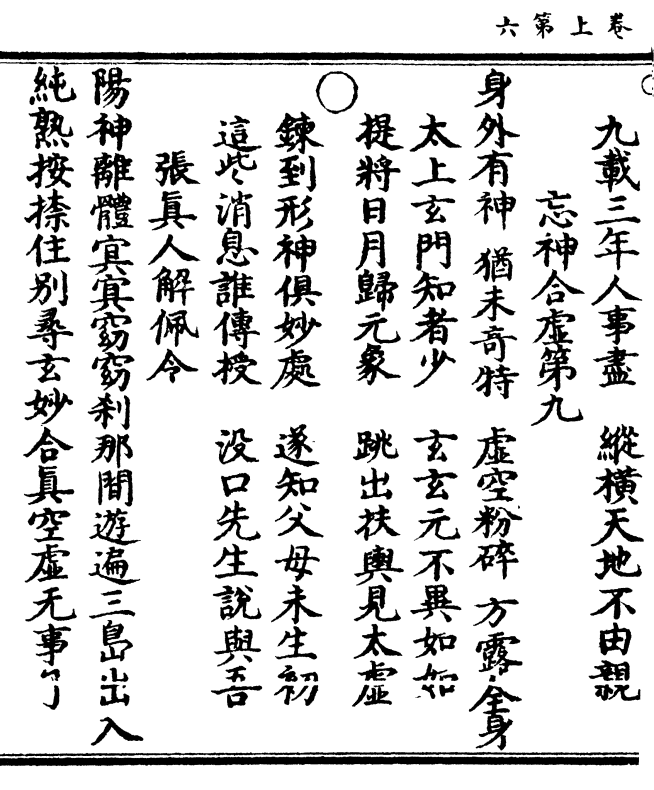 卷上第六
九載三年人事盡 縱橫天地不由親
忘神合虛第九
身外有神 猶未奇特 虛空粉碎 方露全身
太上玄門知者少 玄玄元不異如如
提將日月歸元象 跳出扶輿見太虛
鍊到形神俱妙處 遂知父母未生初
這些消息誰傳授 没口先生說與吾
張眞人解佩令
陽神離體寘寘窈窈刹那間遊遍三島出入
純熟按捺住別尋玄妙合眞空虛无事了